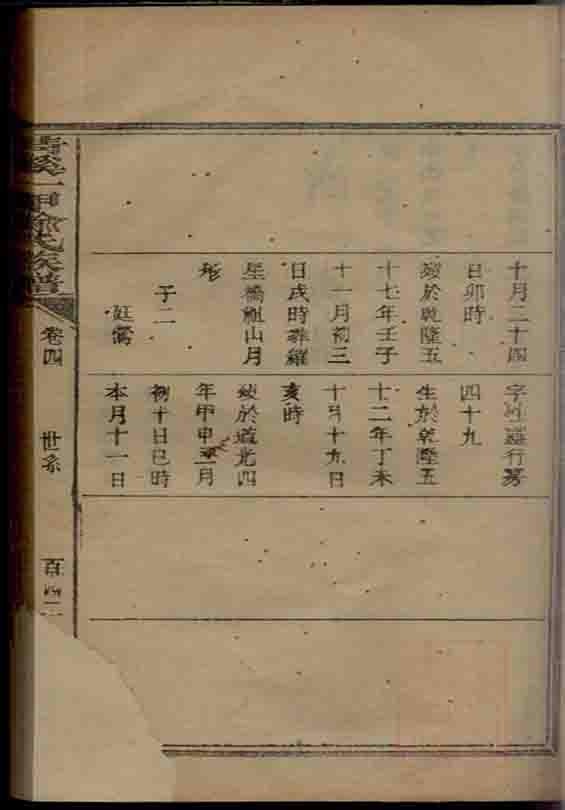 十月二十四
日卯時
歿於乾隆五
十七年壬子
十一月初三
日戌時葬羅
星橋祖山月
形
子二
廷鶯
字 行
四十九
生於乾隆五
十二年丁未
十月十九日
亥時
歿於道光四
年甲申 一月
初十日巳時
本月十一日
溪一甲徐氏族譜
卷四
世系
百四